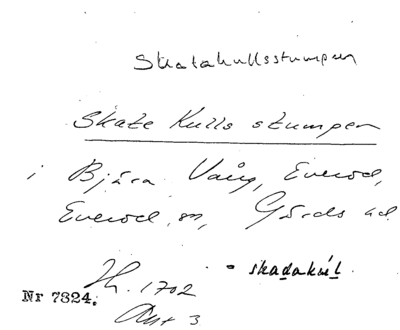 Skatakullsstumpen
Skate Kulls stumpen
i Bjära Vång, Everöd,
Everöd sn, Gärds hd
. skadakúl
Jh. 1702
Nr 7824.
Akt 3